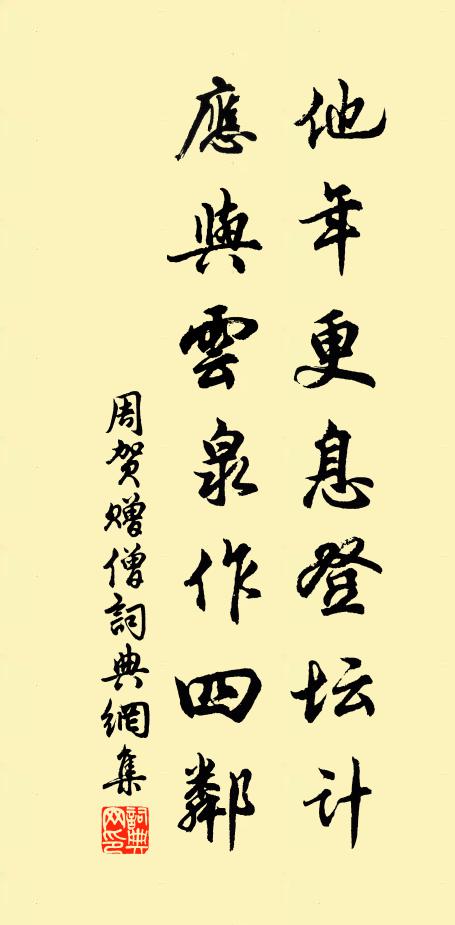 他年更息登坛计
應與雲泉作四鄰
周贺赠僧詞典網集
詞典网印